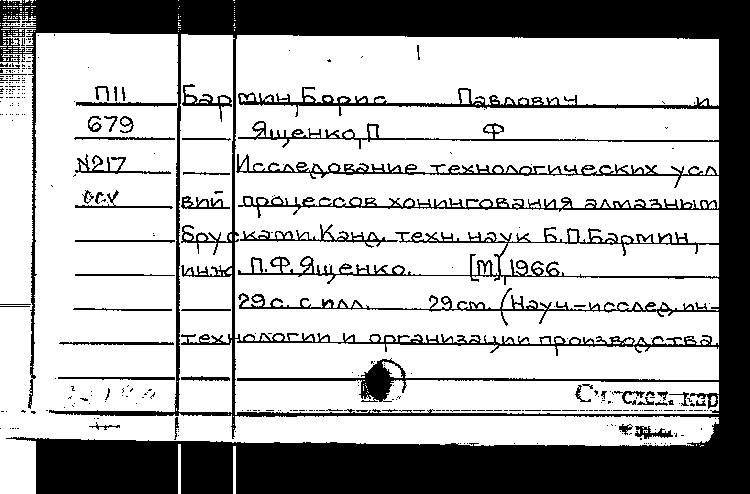 П11 Бармин, Борис Павлович и
679 Ященко, П Ф
N217 Исследование технологических усл
осv вий процессов хонингования алмазным
брусками. Канд. техн. наук Б.П.Бармин,
инж. П.Ф.Ященко. [М], 1966.
29 с. с илл. 29 см. (Науч.-исслед. ин-
технологии и организации производства.
См. след. кар